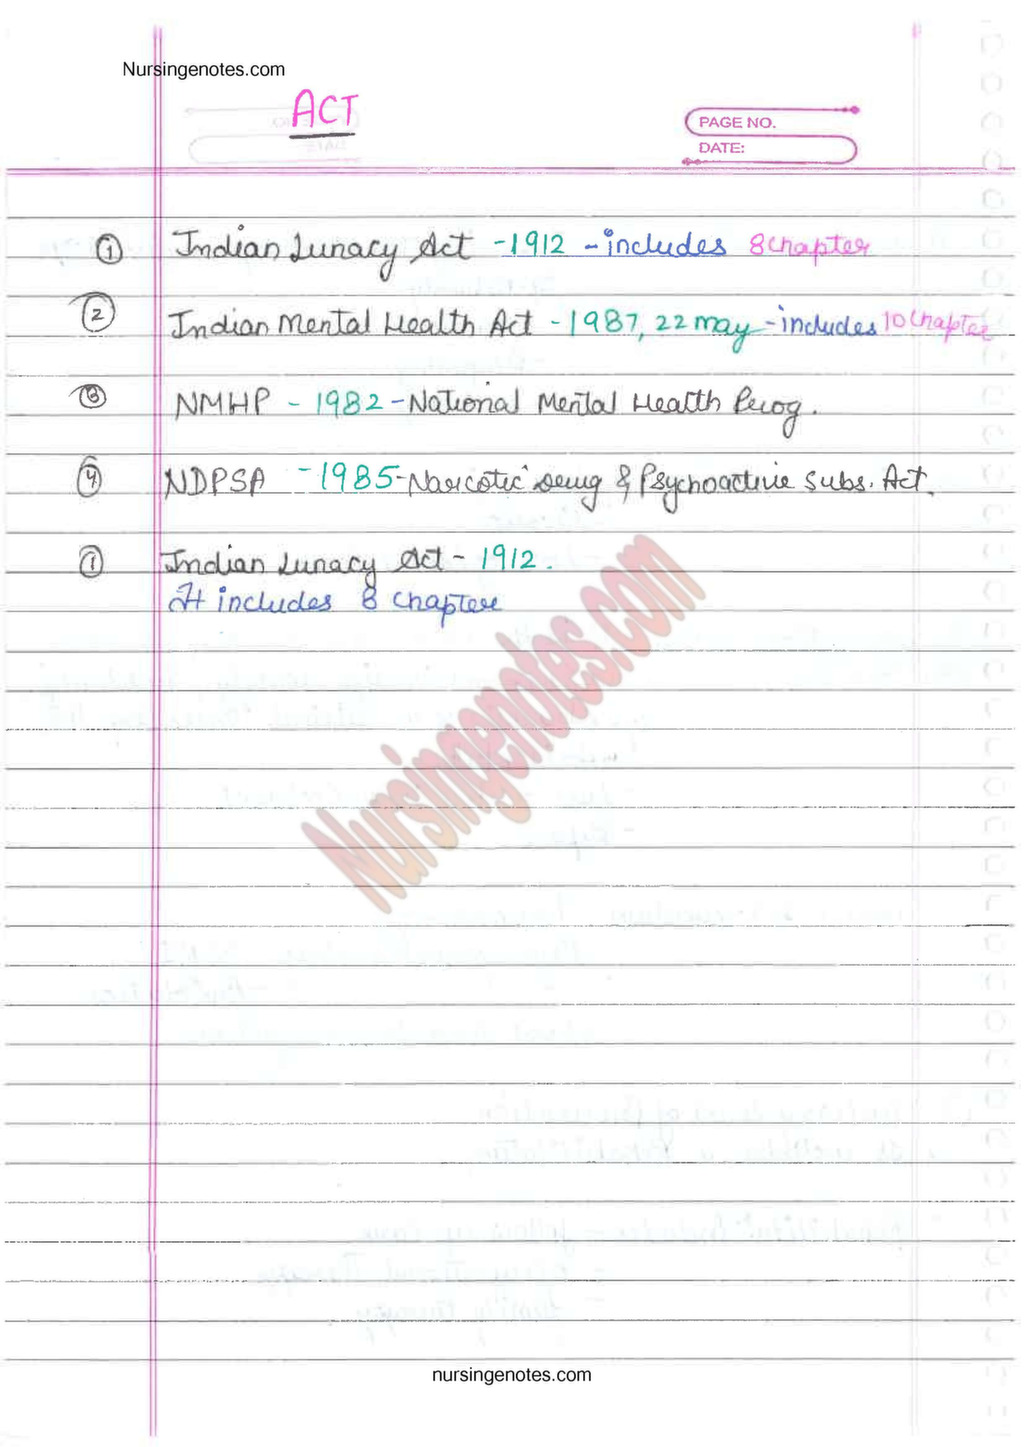 Nursingenotes.com
ACT
PAGE NO.
DATE:
① Indian Lunacy Act - 1912 - includes 8 chapter
② Indian Mental Health Act - 1987, 22 may - includes 10 Chapter
③ NMHP - 1982 - National Mental Health Prog.
④ NDPSA - 1985 - Narcotic Drug & Psychoactive Subs. Act.
① Indian Lunacy Act - 1912.
It includes 8 chapter
Nursingenotes.com
nursingenotes.com